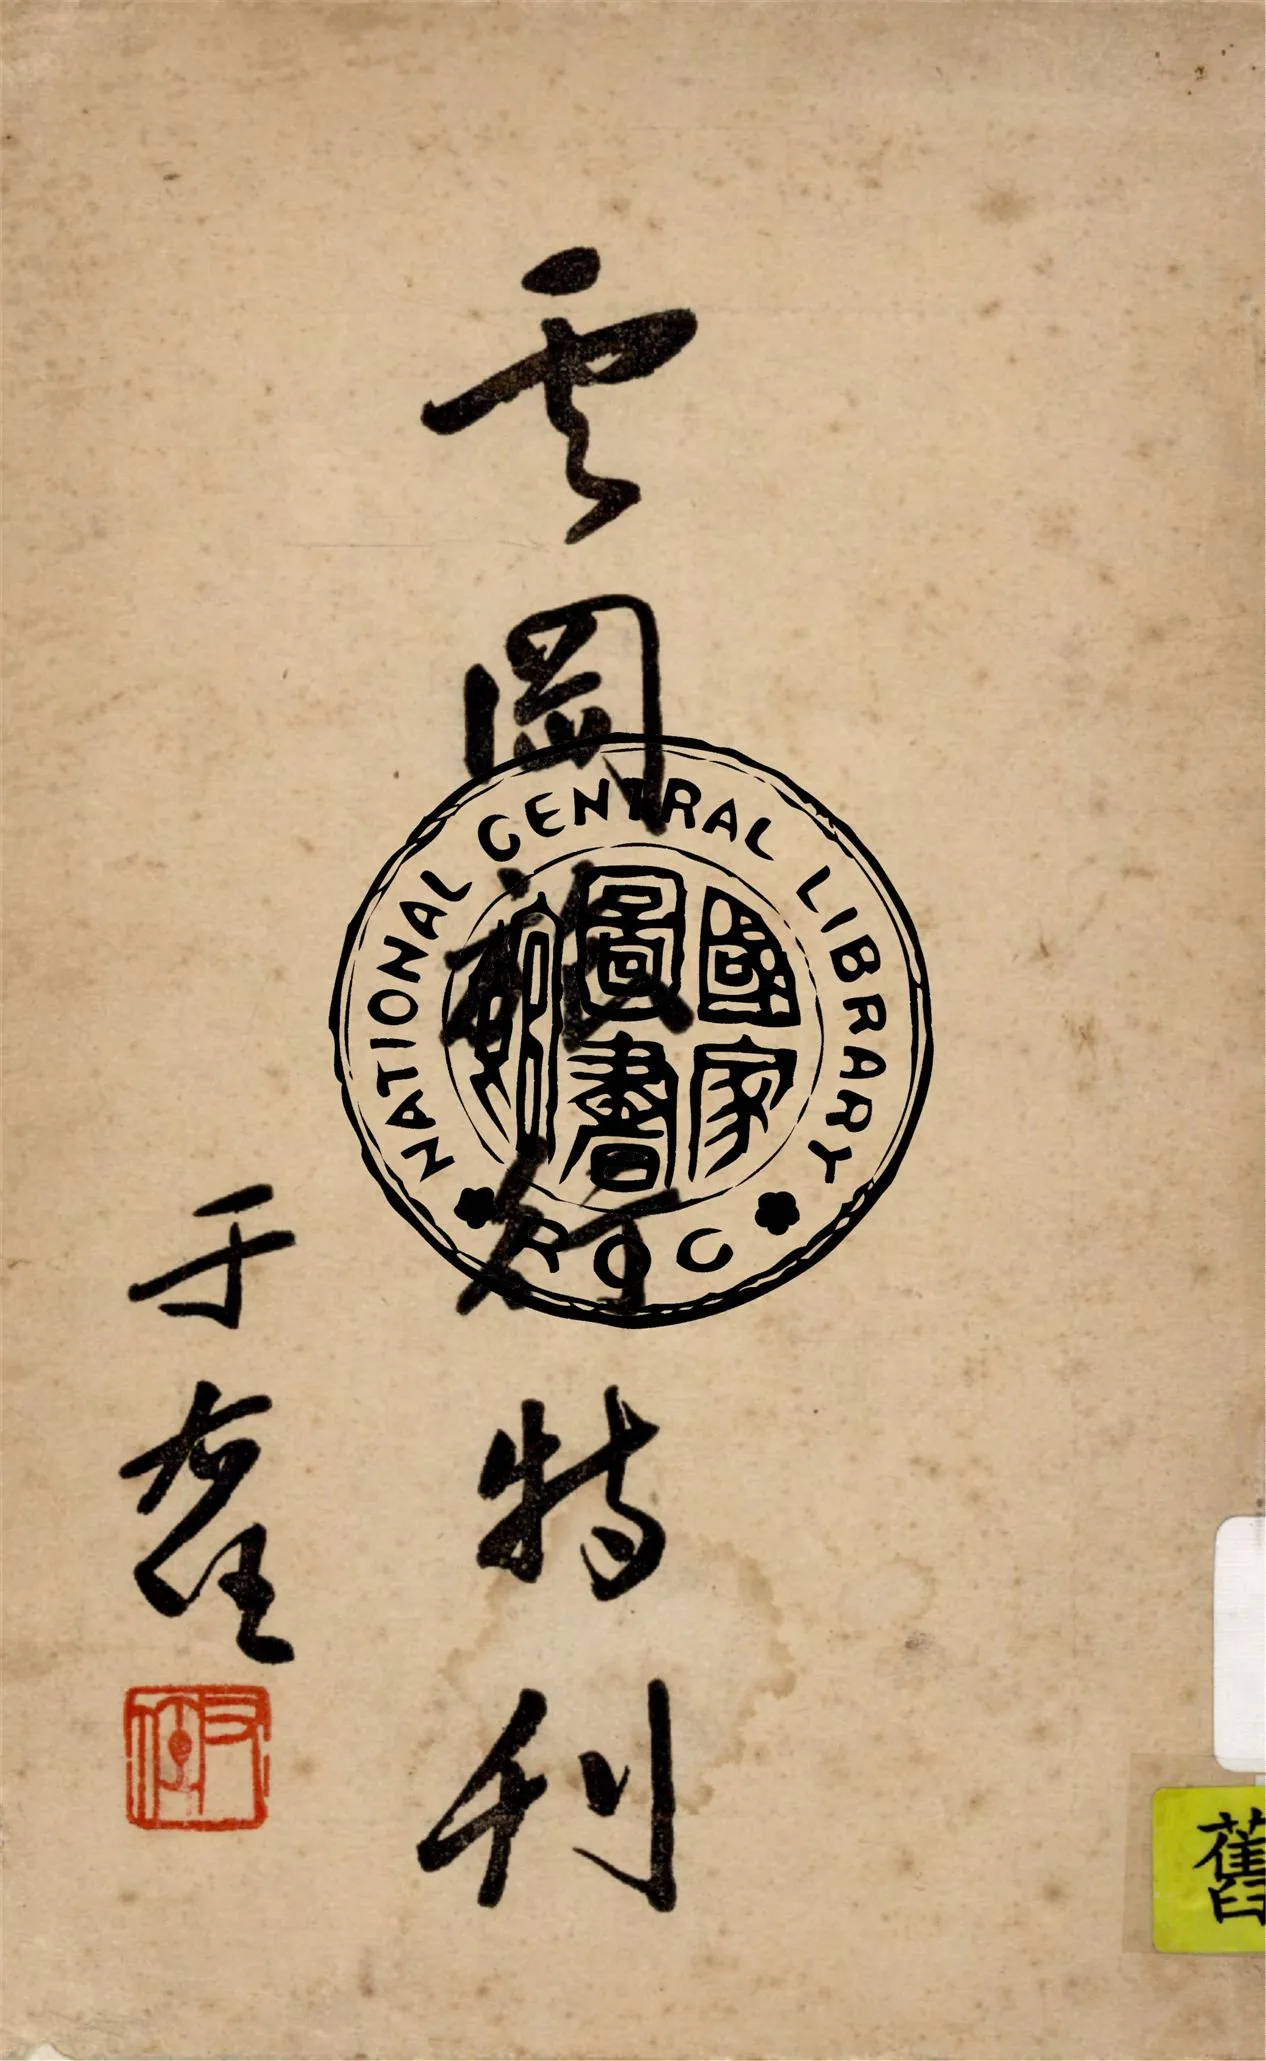 雲岡旅行特刊
于右任
右任
NATIONAL CENTRAL LIBRARY
國家
圖書
館
ROC
舊